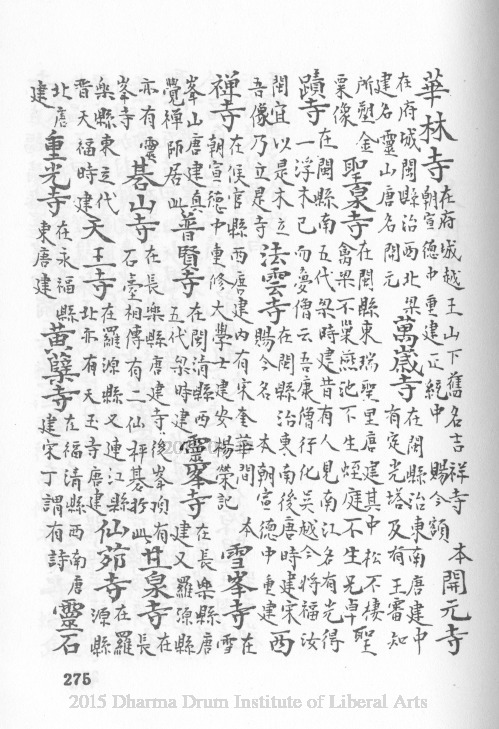 華林寺在府城越王山下舊名吉祥寺本朝宣德中重建正統中賜今額開元寺
在府城閩縣治西北梁建名靈山唐名開元萬歲寺在閩縣治東南唐建中有定光塔及有王審知
所塑金粟像聖泉寺在閩縣東瑞聖里唐建其中松不棲禽梁不巢燕池下生蛭庭不生卓聖
蹟寺在閩縣南五代梁時建昔有人見南江名有光得一浮木已而夢僧云吾廣僧行化吳越今將福汝
閩宜以是木立吾像乃立是寺法雲寺在閩縣治東南後唐時建宋賜今名本朝宣德中重建西
禪寺在候官縣西唐建內有宋奎華間本朝宣德中重修大學士建安楊榮記雪峯寺在雪
峯山唐建真覺禪師居此普賢寺在閩清縣西五代梁時建靈峯寺在長樂縣唐建又羅源縣
亦有雲峯寺碁山寺在長樂縣唐建寺後峯頂有石臺相傳有二仙枰碁於此甘泉寺在長
樂縣東立代晉天福時建天王寺在羅源縣又連江縣北亦有天王寺唐建仙茆寺在羅源縣
北唐建重光寺在永福縣東唐建黃蘗寺在福清縣西南唐建宋丁謂有詩靈石
275
2015 Dharma Drum Institute of Liberal Arts